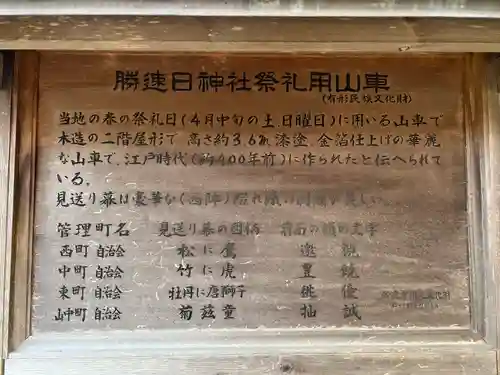 勝速日神社祭礼用山車
(有形民族文化財)
当地の春の祭礼日(4月中旬の土.日曜日)に用いる山車で
木造の二階屋形で 高さ約3.6m 漆塗.金箔仕上げの華麗
な山車で.江戸時代(約400年前)に作られたと伝へられて
いる。
見送り幕は豪華な(西陣)
管理町名 見送り幕の図柄 前面の額の文字
西町 自治会 松に鷹
中町 自治会 竹に虎 豊饒
東町 自治会 牡丹に唐獅子 俳優
山中町 自治会 菊茲童 拙誠